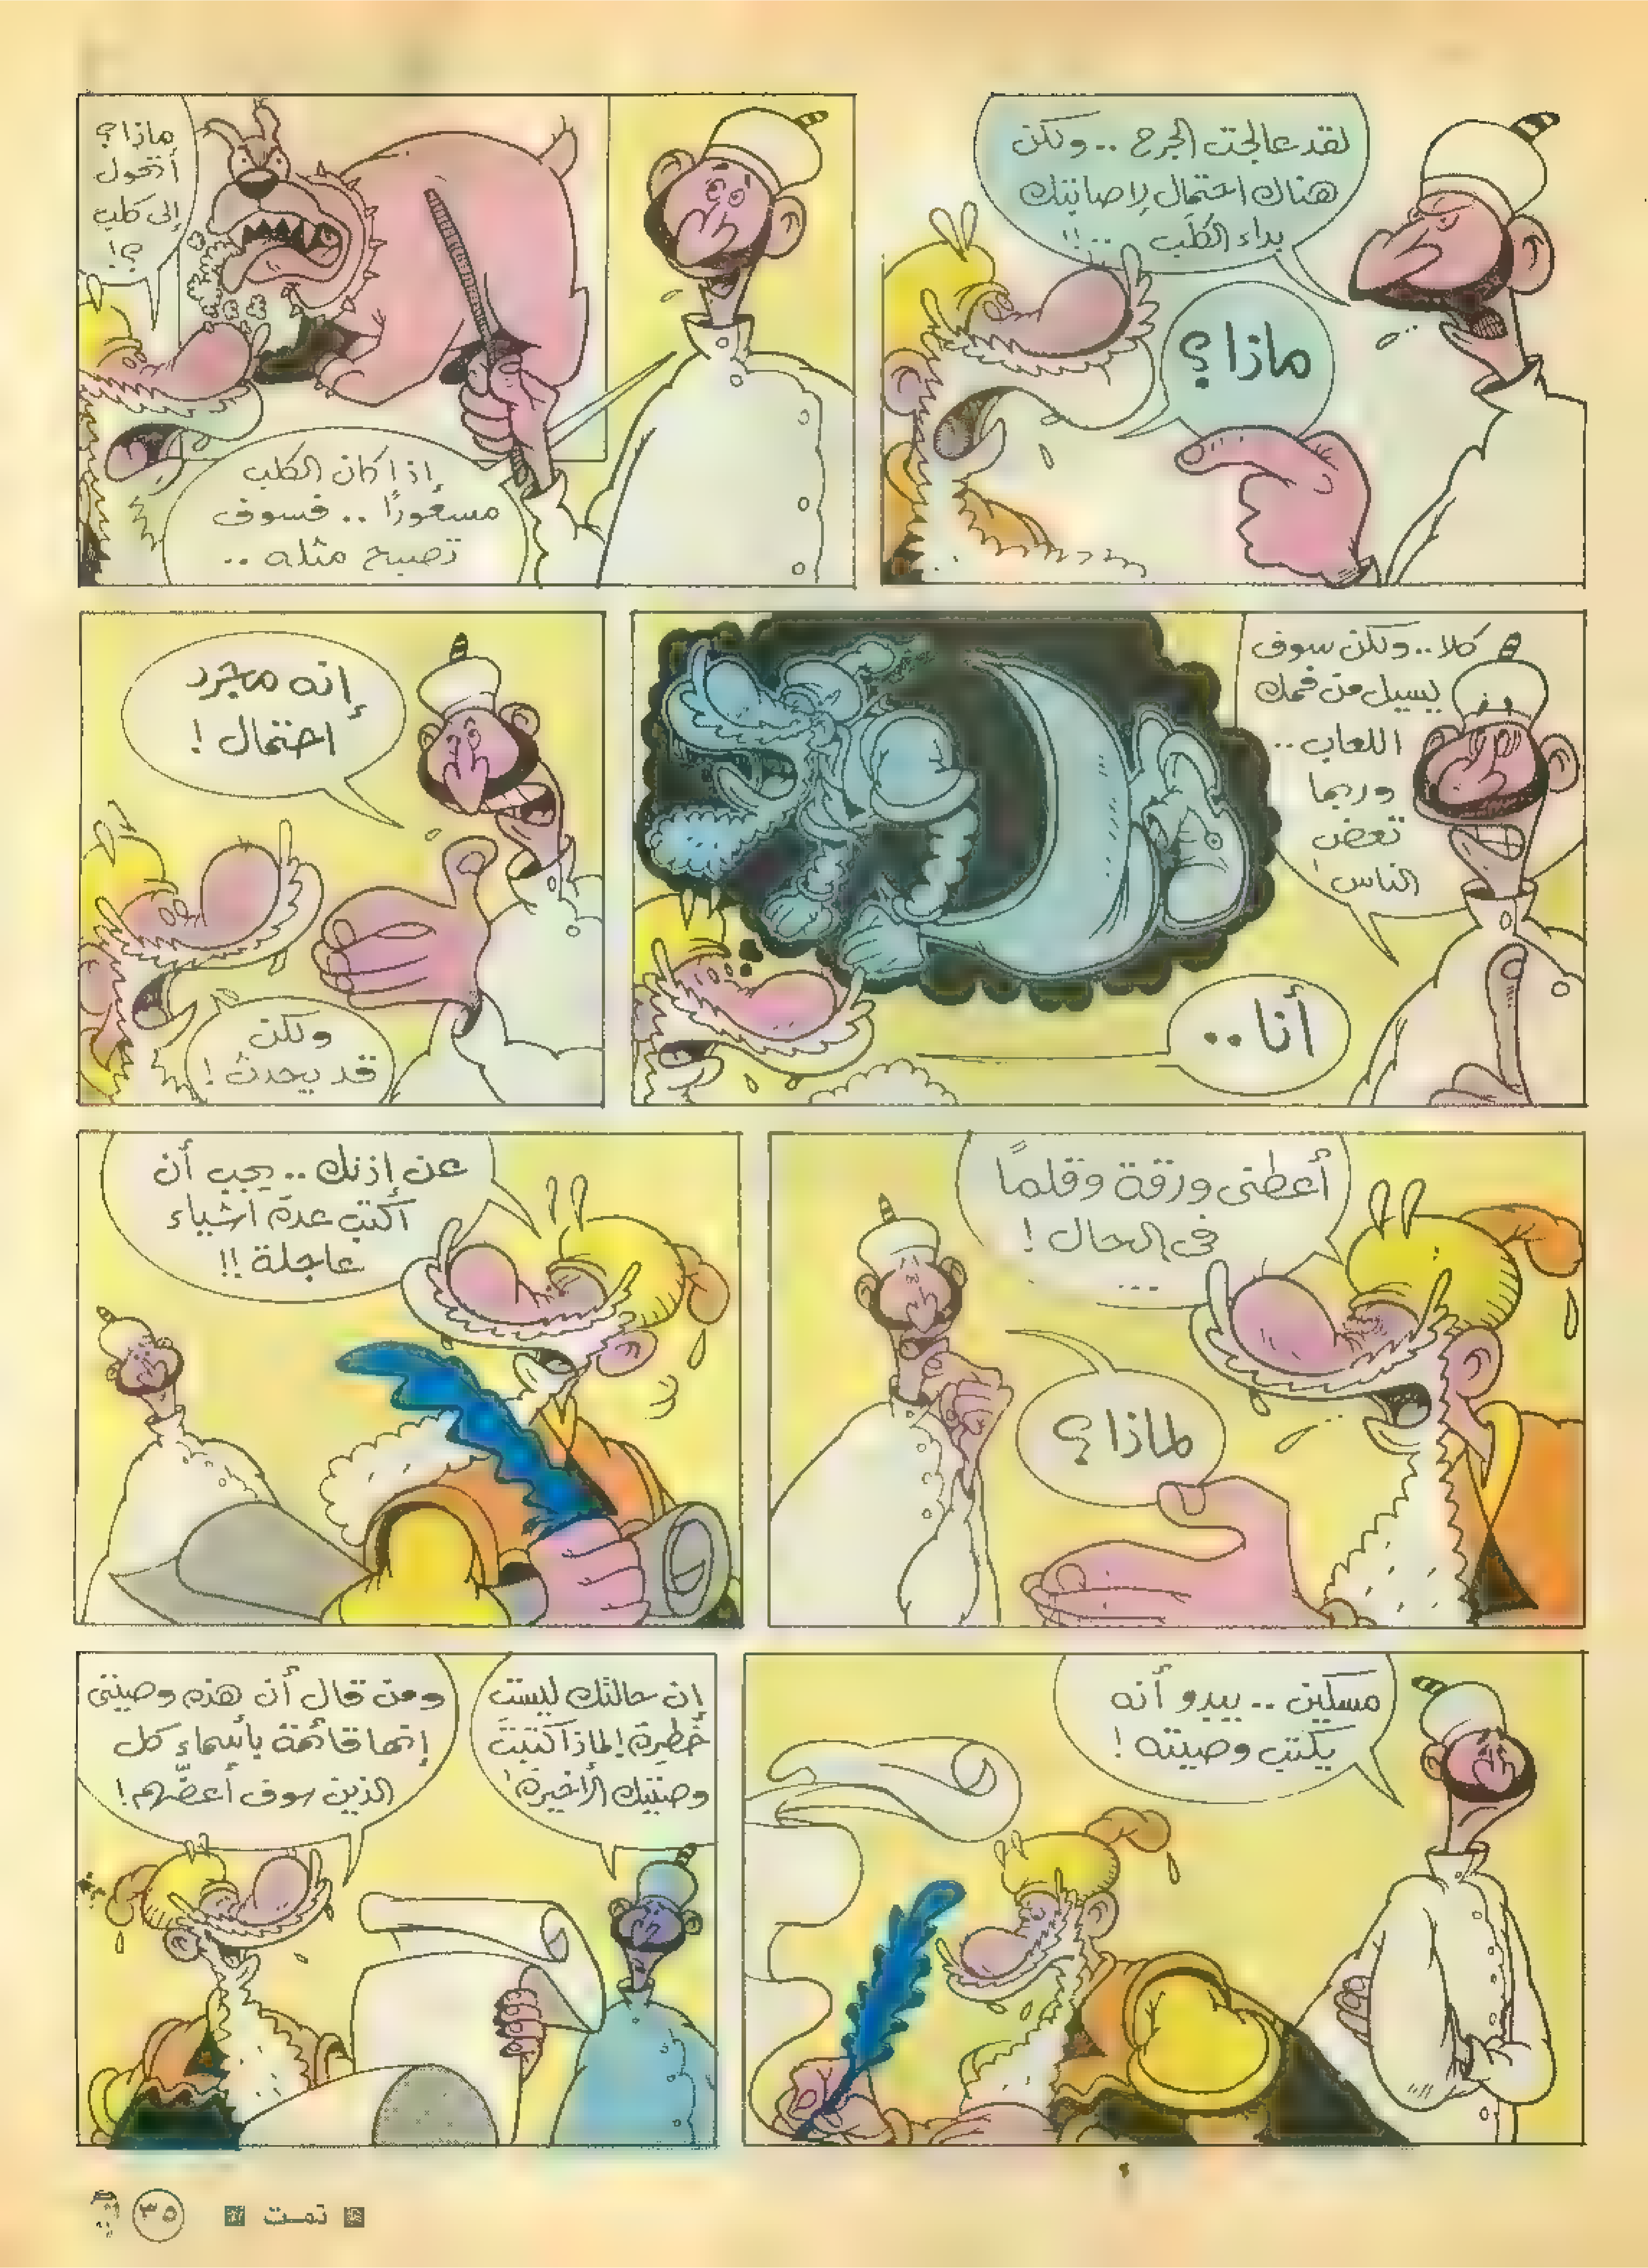 لقد عالجت الجرح .. ولكن
هناك احتمال لإصابتك
بداء الكَلَب ..!!
ماذا؟
إذا كان الكلب
مسعورًا .. فسوف
تصبح مثله ..
ماذا؟
أتحول
إلى كلب
؟!
كلا .. ولكن سوف
يسيل من فمك
اللعاب ..
وربما
تعض
الناس!
أنا ..
إنه مجرد
احتمال!
ولكن
قد يحدث!
أعطنى ورقة وقلمًا
فى الحال!
...
لماذا؟
عن إذنك .. يجب أن
أكتب عدة أشياء
عاجلة!!
مسكين .. يبدو أنه
يكتب وصيته!
إن حالتك ليست
خطيرة! لماذا كتبت
وصيتك الأخيرة!
ومن قال أن هذه وصيتى
إنها قائمة بأسماء كل
الذين سوف أعضّهم!
تمت
٣٥